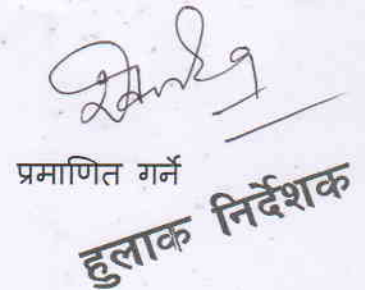 प्रमाणित गर्ने
हुलाक निर्देशक